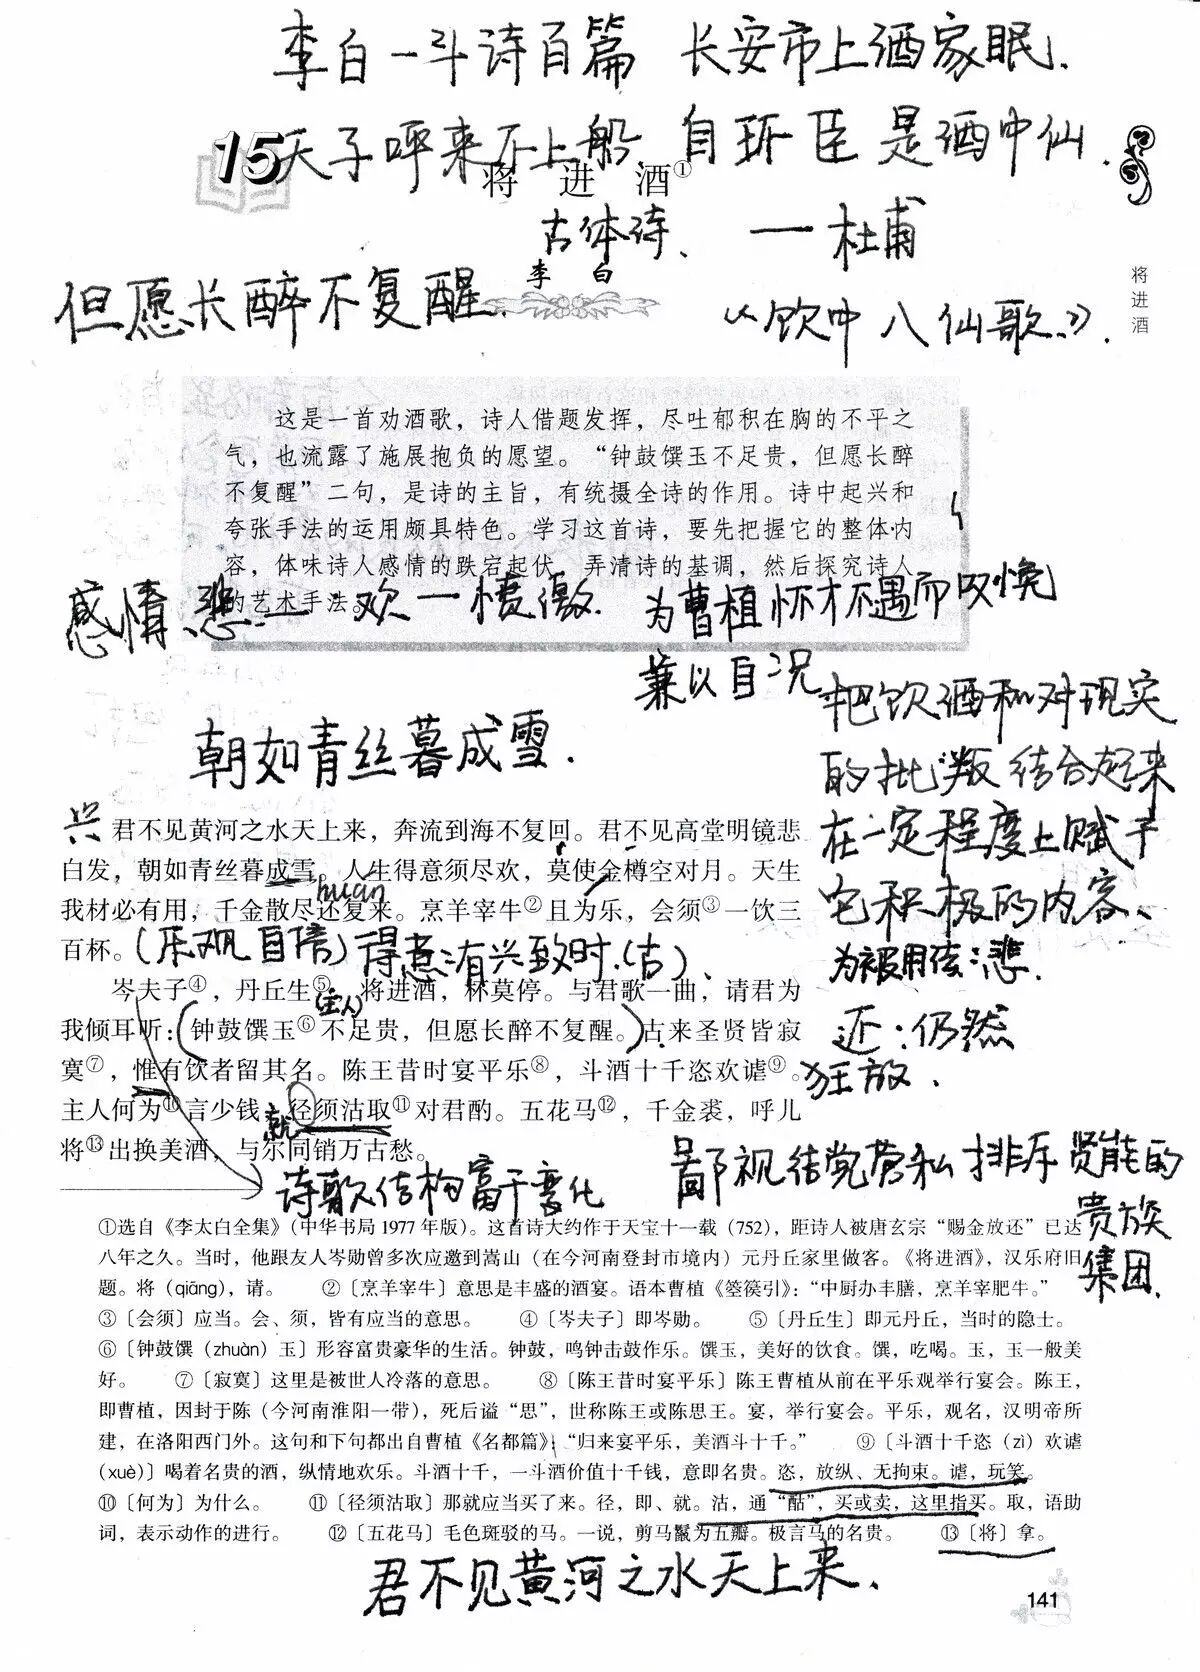 李白一斗诗百篇 长安市上酒家眠.
15 天子呼来不上船. 自称臣是酒中仙.
将进酒①
古体诗、 ——杜甫
李白
但愿长醉不复醒. 《饮中八仙歌》.
将进酒
这是一首劝酒歌，诗人借题发挥，尽吐郁积在胸的不平之
气，也流露了施展抱负的愿望。“钟鼓馔玉不足贵，但愿长醉
不复醒”二句，是诗的主旨，有统摄全诗的作用。诗中起兴和
夸张手法的运用颇具特色。学习这首诗，要先把握它的整体内
容，体味诗人感情的跌宕起伏，弄清诗的基调，然后探究诗人
的艺术手法。
感情：悲—欢—愤激. 为曹植怀才不遇而叹惋
兼以自况
把饮酒和对现实
的批判结合起来
在一定程度上赋予
它积极的内容、
朝如青丝暮成雪.
兴
君不见黄河之水天上来，奔流到海不复回。君不见高堂明镜悲
白发，朝如青丝暮成雪。人生得意须尽欢，莫使金樽空对月。天生
huán
我材必有用，千金散尽还复来。烹羊宰牛②且为乐，会须③一饮三
百杯。(乐观自信) 得意：有兴致时.(古).
为被用弦：悲.
岑夫子④，丹丘生⑤，将进酒，杯莫停。与君歌一曲，请君为
(主人)
我倾耳听：(钟鼓馔玉⑥不足贵，但愿长醉不复醒。)古来圣贤皆寂
还：仍然
寞⑦，惟有饮者留其名。陈王昔时宴平乐⑧，斗酒十千恣欢谑⑨。
狂放.
主人何为⑩言少钱，径须沽取⑪对君酌。五花马⑫，千金裘，呼儿
就
将⑬出换美酒，与尔同销万古愁。
诗歌结构富于变化
鄙视结党营私排斥贤能的
贵族
集团.
①选自《李太白全集》（中华书局1977年版）。这首诗大约作于天宝十一载（752），距诗人被唐玄宗“赐金放还”已达
八年之久。当时，他跟友人岑勋曾多次应邀到嵩山（在今河南登封市境内）元丹丘家里做客。《将进酒》，汉乐府旧
题。将（qiāng），请。 ②〔烹羊宰牛〕意思是丰盛的酒宴。语本曹植《箜篌引》：“中厨办丰膳，烹羊宰肥牛。”
③〔会须〕应当。会、须，皆有应当的意思。 ④〔岑夫子〕即岑勋。 ⑤〔丹丘生〕即元丹丘，当时的隐士。
⑥〔钟鼓馔（zhuàn）玉〕形容富贵豪华的生活。钟鼓，鸣钟击鼓作乐。馔玉，美好的饮食。馔，吃喝。玉，玉一般美
好。 ⑦〔寂寞〕这里是被世人冷落的意思。 ⑧〔陈王昔时宴平乐〕陈王曹植从前在平乐观举行宴会。陈王，
即曹植，因封于陈（今河南淮阳一带），死后谥“思”，世称陈王或陈思王。宴，举行宴会。平乐，观名，汉明帝所
建，在洛阳西门外。这句和下句都出自曹植《名都篇》：“归来宴平乐，美酒斗十千。” ⑨〔斗酒十千恣（zì）欢谑
（xuè）〕喝着名贵的酒，纵情地欢乐。斗酒十千，一斗酒价值十千钱，意即名贵。恣，放纵、无拘束。谑，玩笑。
⑩〔何为〕为什么。 ⑪〔径须沽取〕那就应当买了来。径，即、就。沽，通“酤”，买或卖，这里指买。取，语助
词，表示动作的进行。 ⑫〔五花马〕毛色斑驳的马。一说，剪马鬣为五瓣。极言马的名贵。 ⑬〔将〕拿。
君不见黄河之水天上来.
141